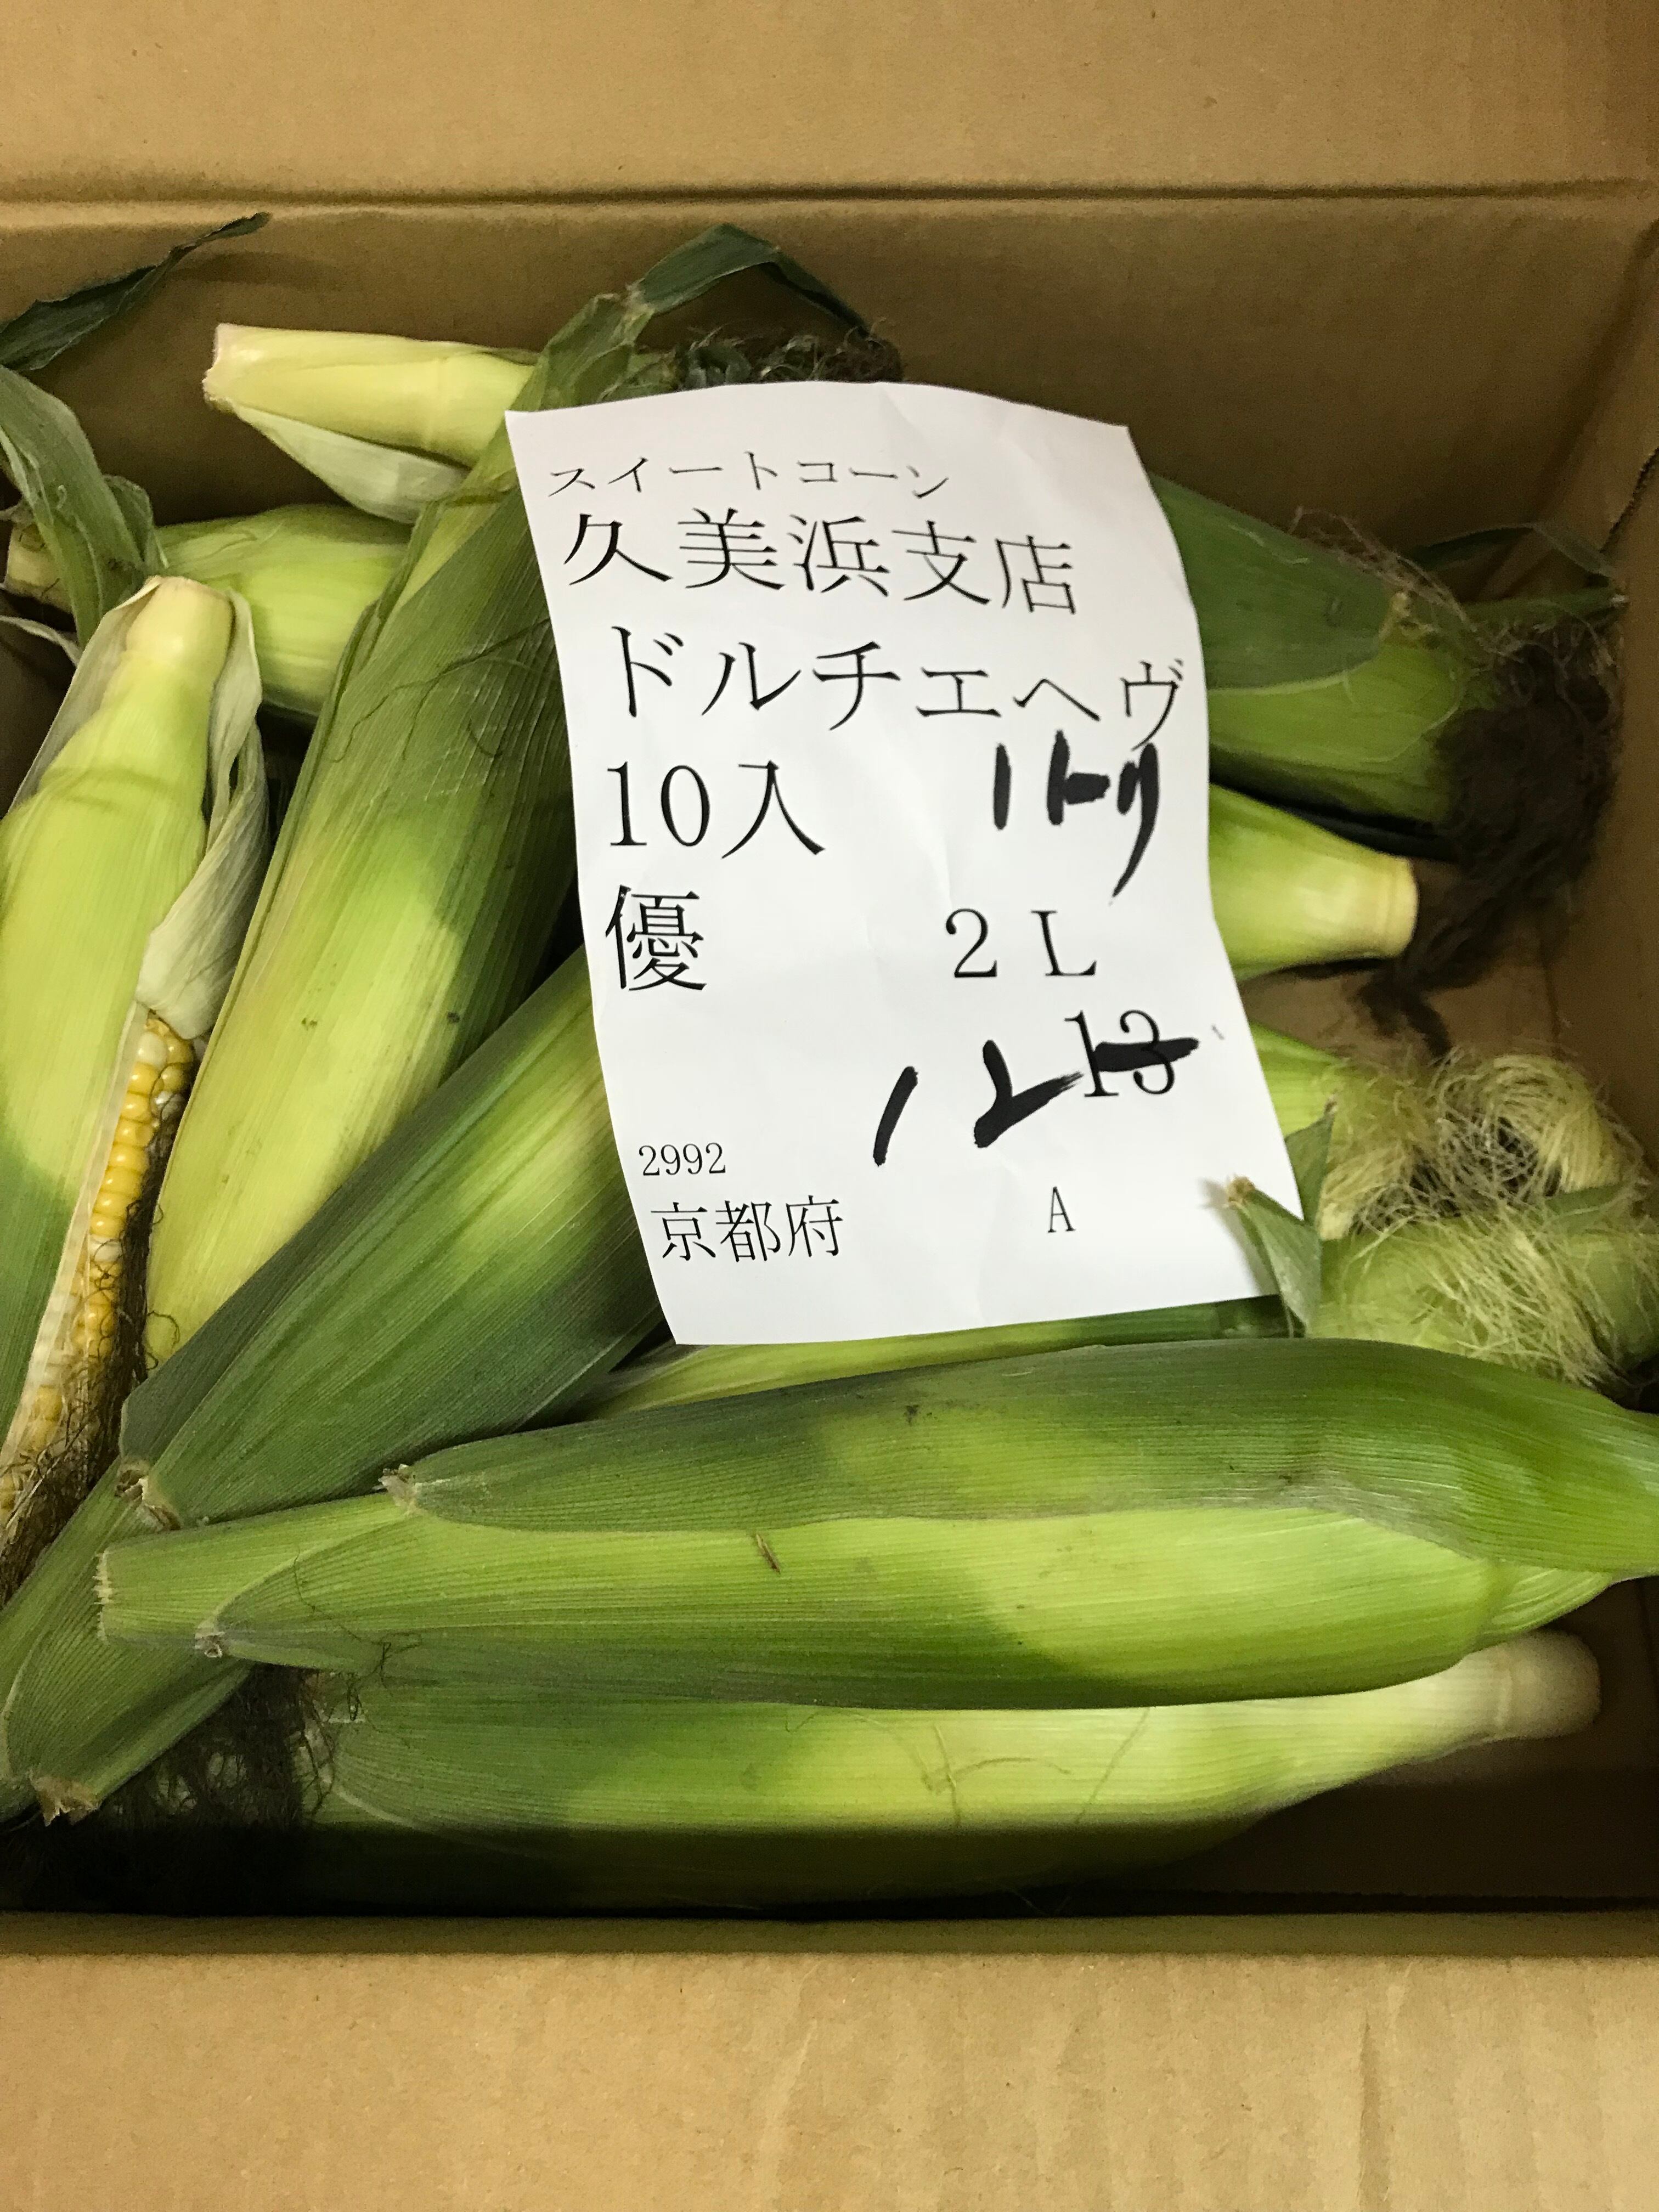 スイートコーン
久美浜支店
ドルチェヘヴ
10入
優 2L
12 13
2992
京都府 A